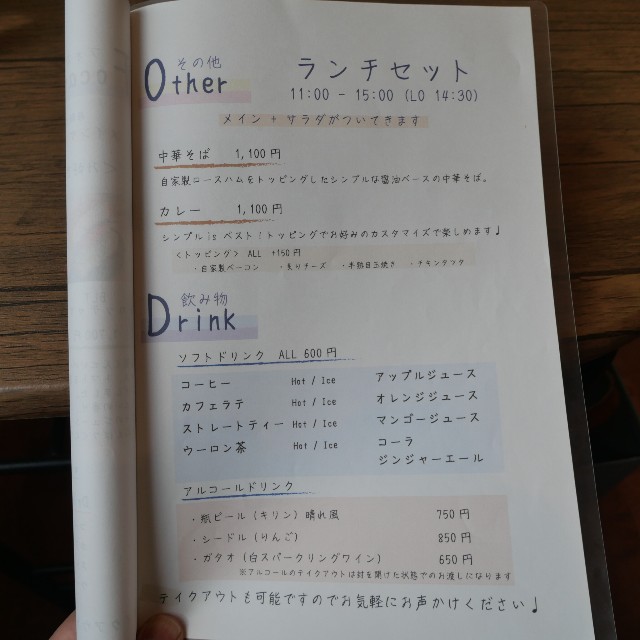 その他
Other
ランチセット
11:00 - 15:00 (LO 14:30)
メイン + サラダがついてきます
中華そば 1,100円
自家製ロースハムをトッピングしたシンプルな醤油ベースの中華そば。
カレー 1,100円
シンプル is ベスト!トッピングでお好みのカスタマイズで楽しめます♩
<トッピング> ALL +150円
・自家製ベーコン ・炙りチーズ ・半熟目玉焼き ・チキンカツ
飲み物
Drink
ソフトドリンク ALL 600円
コーヒー Hot / Ice アップルジュース
カフェラテ Hot / Ice オレンジジュース
ストレートティー Hot / Ice マンゴージュース
ウーロン茶 Hot / Ice コーラ
ジンジャーエール
アルコールドリンク
・瓶ビール (キリン) 晴れ風 750円
・シードル (りんご) 850円
・ガタオ (白スパークリングワイン) 650円
※アルコールのテイクアウトは封を開けた状態でのお渡しになります
テイクアウトも可能ですのでお気軽にお声がけください♩